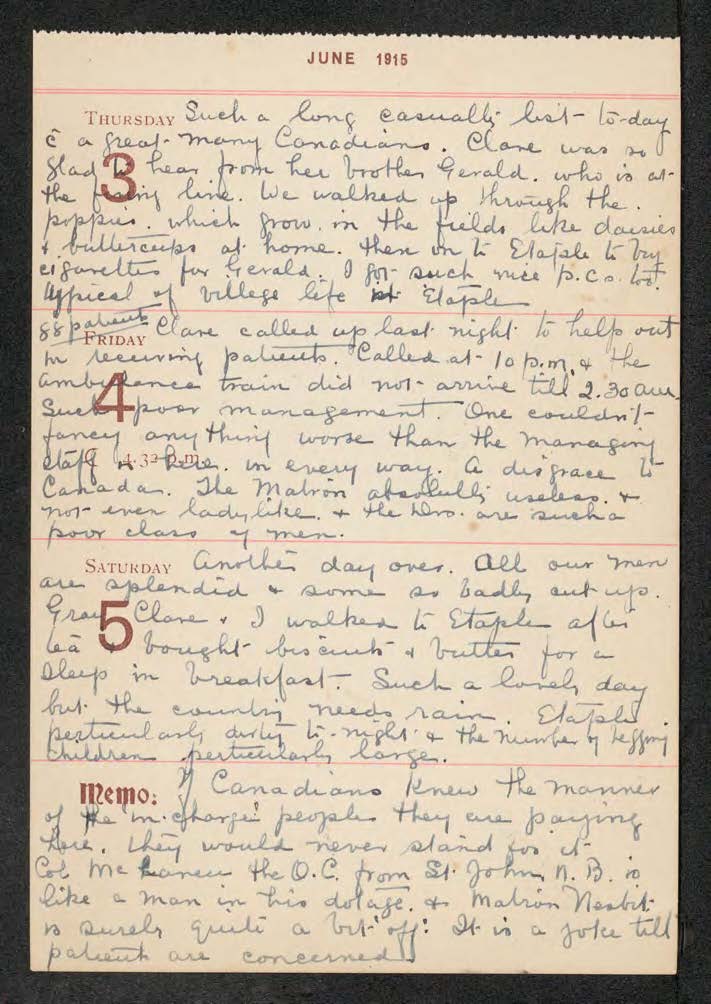 JUNE 1915
THURSDAY Such a long casualty list to-day
c̄ a great many Canadians. Clare was so
glad to hear from her brother Gerald. who is at
3
the firing line. We walked up through the
poppies. which grow in the fields like daisies
& buttercups at home. then on to Etaple to buy
cigarettes for Gerald. I got such nice p.c.s. too.
typical of village life at Etaple
88 patients
FRIDAY Clare called up last night to help out
in receiving patients. Called at 10 p.m. & the
ambulence train did not arrive till 2.30 am.
4
Such poor management. One couldn't
fancy anything worse than the managing
staff is here. in every way. A disgrace to
4.32 p.m.
Canada. The Matron absolutely useless. &
not even ladylike. & the Drs. are such a
poor class of men.
SATURDAY Another day over. All our men
are splendid & some so badly cut up.
5
Clare & I walked to Etaple after
tea & bought biscuits & butter for a
sleep in breakfast. Such a lovely day
but the country needs rain. Etaple
perticularly dirty to-night & the number of begging
children perticularly large.
Memo: If Canadians knew the manner
of the "in-charge" people they are paying
here. they would never stand for it
Col the O.C. from St. John, N.B. is
like a man in his dotage. & Matron Nesbit
is surely quite a bit "off". It is a joke till
patient are concerned.